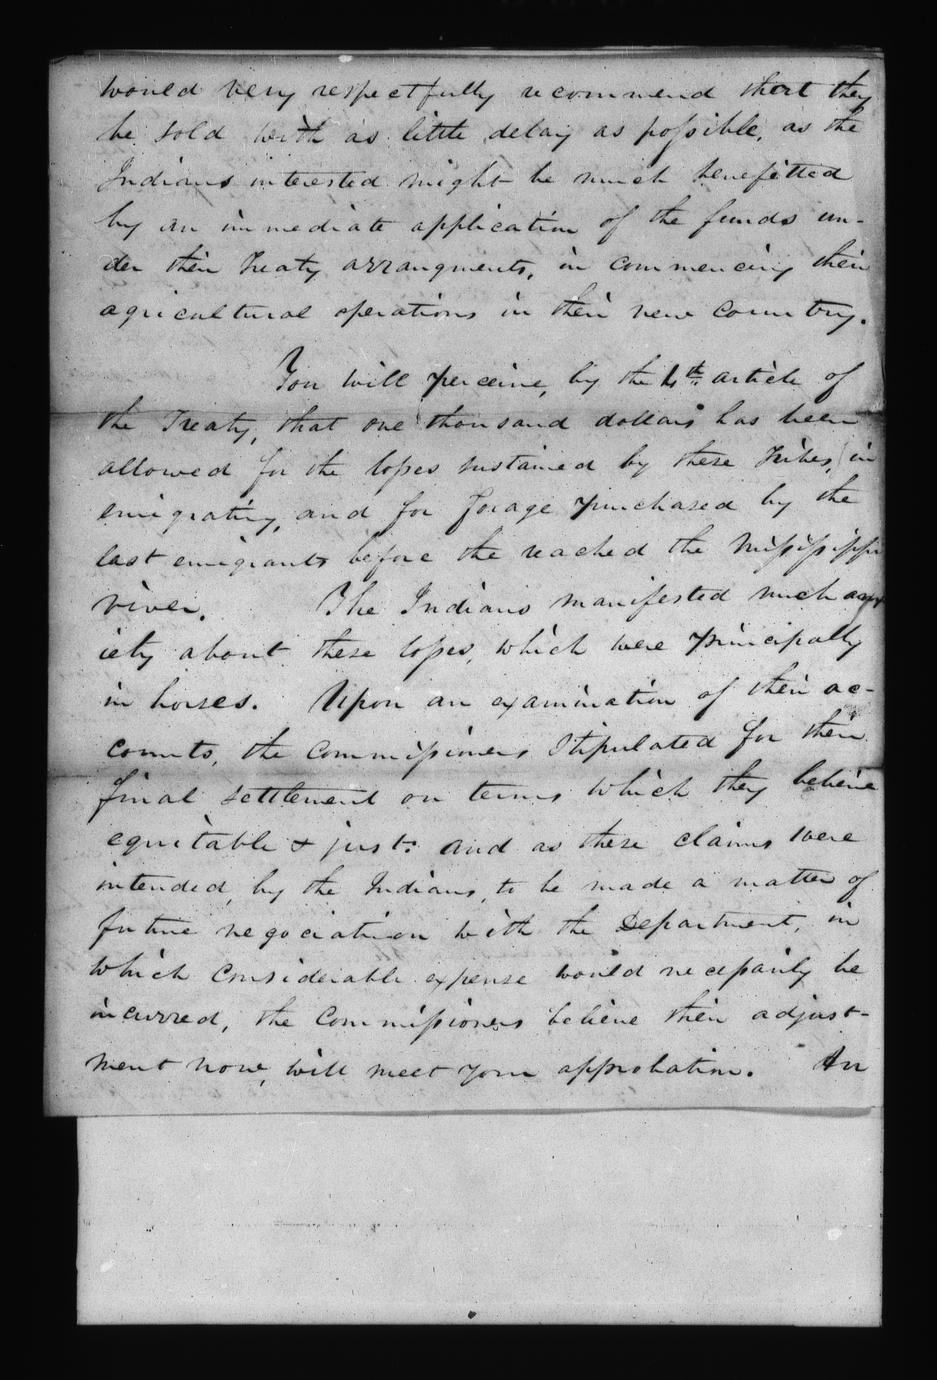 would very respectfully recommend that they
be sold with as little delay as possible, as the
Indians interested might be much benefitted
by an immediate application of the funds un-
der their Treaty arrangments, in commencing their
agricultural operations in their new country.
You will perceive, by the 4th. article of
the Treaty, that one thousand dollars has been
allowed for the losses sustained by these Tribes, in
emigrating, and for forage purchased by the
last emigrants before the reached the Mississippi
river. The Indians manifested much anx
iety about these losses, which were principally
in horses. Upon an examination of their ac-
counts, the Commissioners Stipulated for their
final settlement on terms which they believe
equitable & just: and as these claims were
intended, by the Indians, to be made a matter of
future negociation with the Department, in
which considerable expense would necessarily be
incurred, the Commissioners believe their adjust-
ment now, will meet your approbation. An